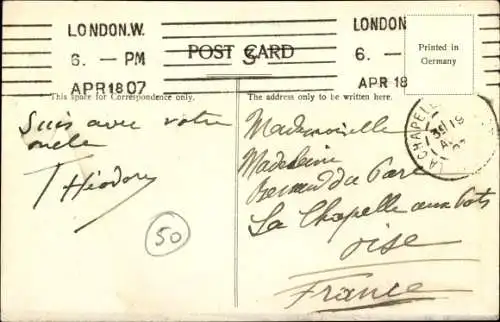 LONDON.W.
6. — PM
APR 18 07
LONDON
6. —
APR 18
POST CARD
Printed in
Germany
This space for Correspondence only.
The address only to be written here.
LA CHAPELLE
19
Suis avec votre
oncle
Théodore
50
Mademoiselle
Madeleine
La Chapelle aux Pots
Oise
France